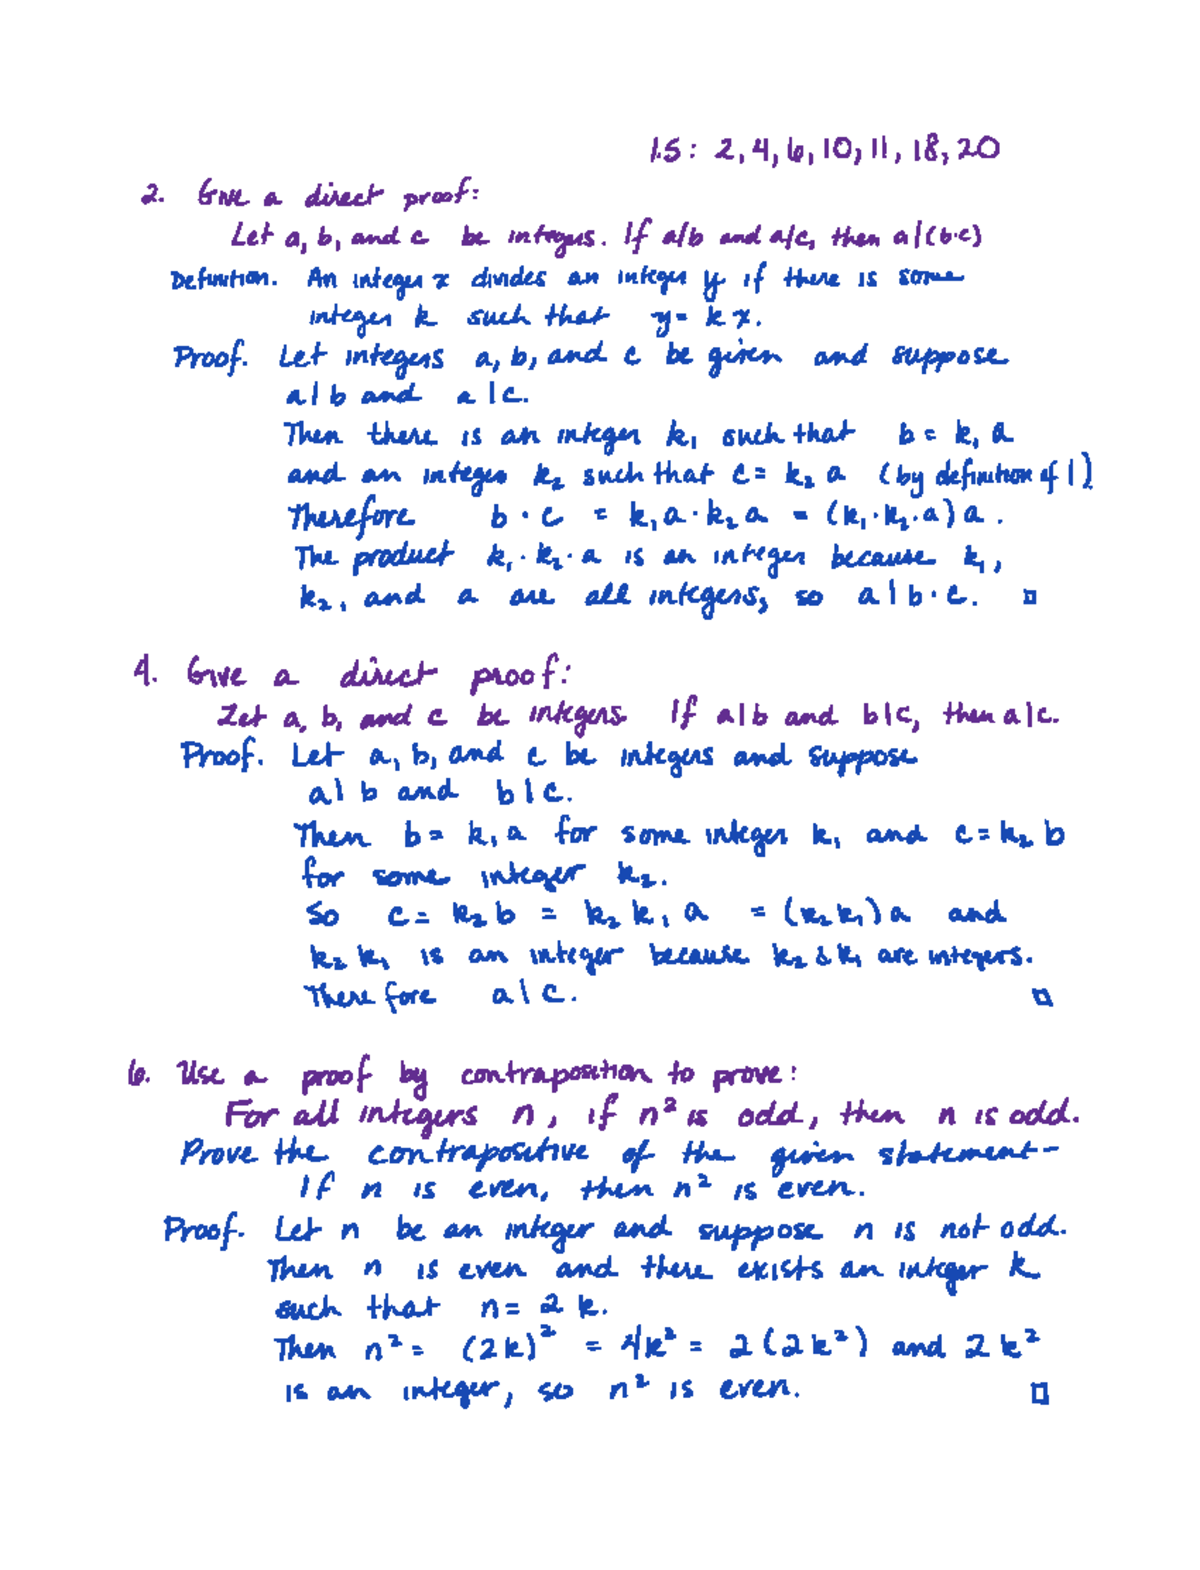 1.5: 2, 4, 6, 10, 11, 18, 20
2. Give a direct proof:
Let a, b, and c be integers. If a/b and a/c, then a|(b·c)
Definition. An integer x divides an integer y if there is some
integer k such that y = kx.
Proof. Let integers a, b, and c be given and suppose
a|b and a|c.
Then there is an integer k₁ such that b = k₁a
and an integer k₂ such that c = k₂a (by definition of |)
Therefore b·c = k₁a·k₂a = (k₁·k₂·a)a.
The product k₁·k₂·a is an integer because k₁,
k₂, and a are all integers, so a|b·c. □
4. Give a direct proof:
Let a, b, and c be integers. If a|b and b|c, then a|c.
Proof. Let a, b, and c be integers and suppose
a|b and b|c.
Then b = k₁a for some integer k₁ and c = k₂b
for some integer k₂.
So c = k₂b = k₂k₁a = (k₂k₁)a and
k₂k₁ is an integer because k₂ & k₁ are integers.
Therefore a|c. □
6. Use a proof by contraposition to prove:
For all integers n, if n² is odd, then n is odd.
Prove the contrapositive of the given statement-
If n is even, then n² is even.
Proof. Let n be an integer and suppose n is not odd.
Then n is even and there exists an integer k
such that n = 2k.
Then n² = (2k)² = 4k² = 2(2k²) and 2k²
is an integer, so n² is even. □